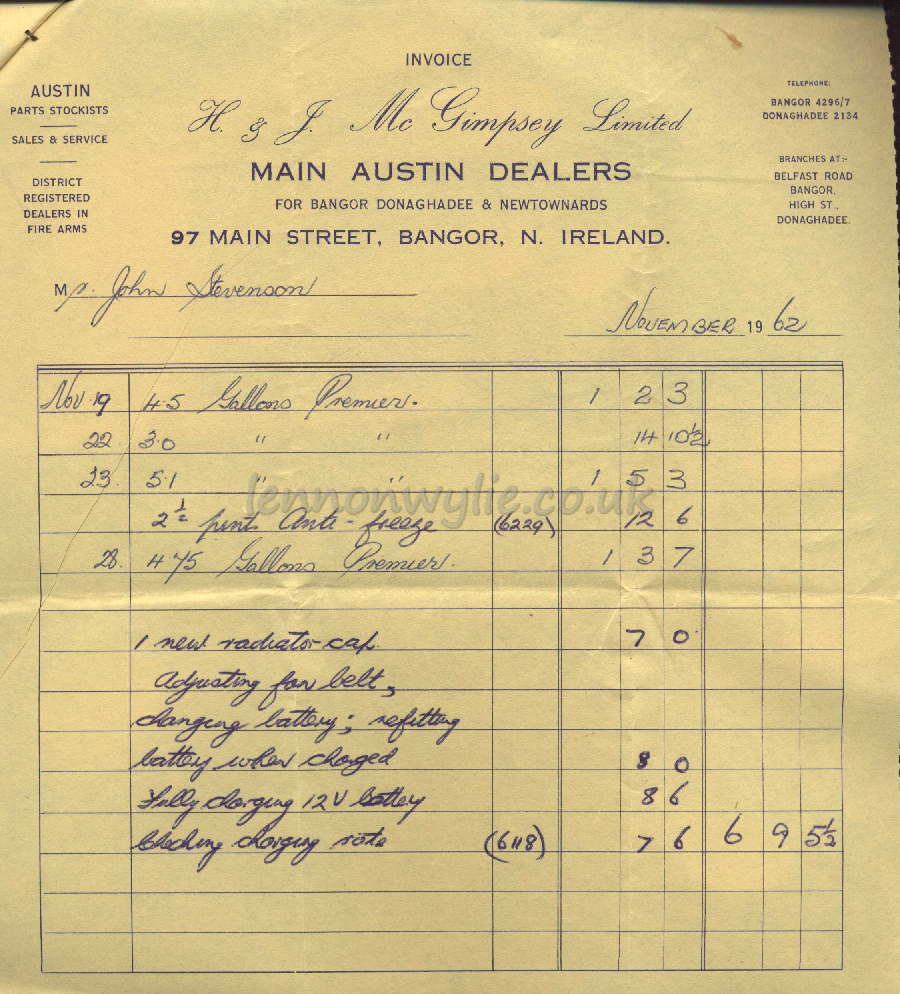 INVOICE
AUSTIN
PARTS STOCKISTS
SALES & SERVICE
DISTRICT
REGISTERED
DEALERS IN
FIRE ARMS
H. & J. McGimpsey Limited
MAIN AUSTIN DEALERS
FOR BANGOR DONAGHADEE & NEWTOWNARDS
97 MAIN STREET, BANGOR, N. IRELAND.
TELEPHONE:
BANGOR 4296/7
DONAGHADEE 2134
BRANCHES AT:-
BELFAST ROAD
BANGOR,
HIGH ST.,
DONAGHADEE.
Mr. John Stevenson
NOVEMBER 1962
Nov 19 4.5 Gallons Premier. 1 2 3
22. 3.0 " " 14 10½
23. 5.1 " " 1 5 3
lennonwylie.co.uk
2½ pints Anti-freeze (6229) 12 6
28. 4.75 Gallons Premier. 1 3 7
1 new radiator cap. 7 0
Adjusting fan belt,
changing battery; refitting
battery when charged 8 0
Fully charging 12V battery 8 6
Checking charging rate (6118) 7 6 6 9 5½